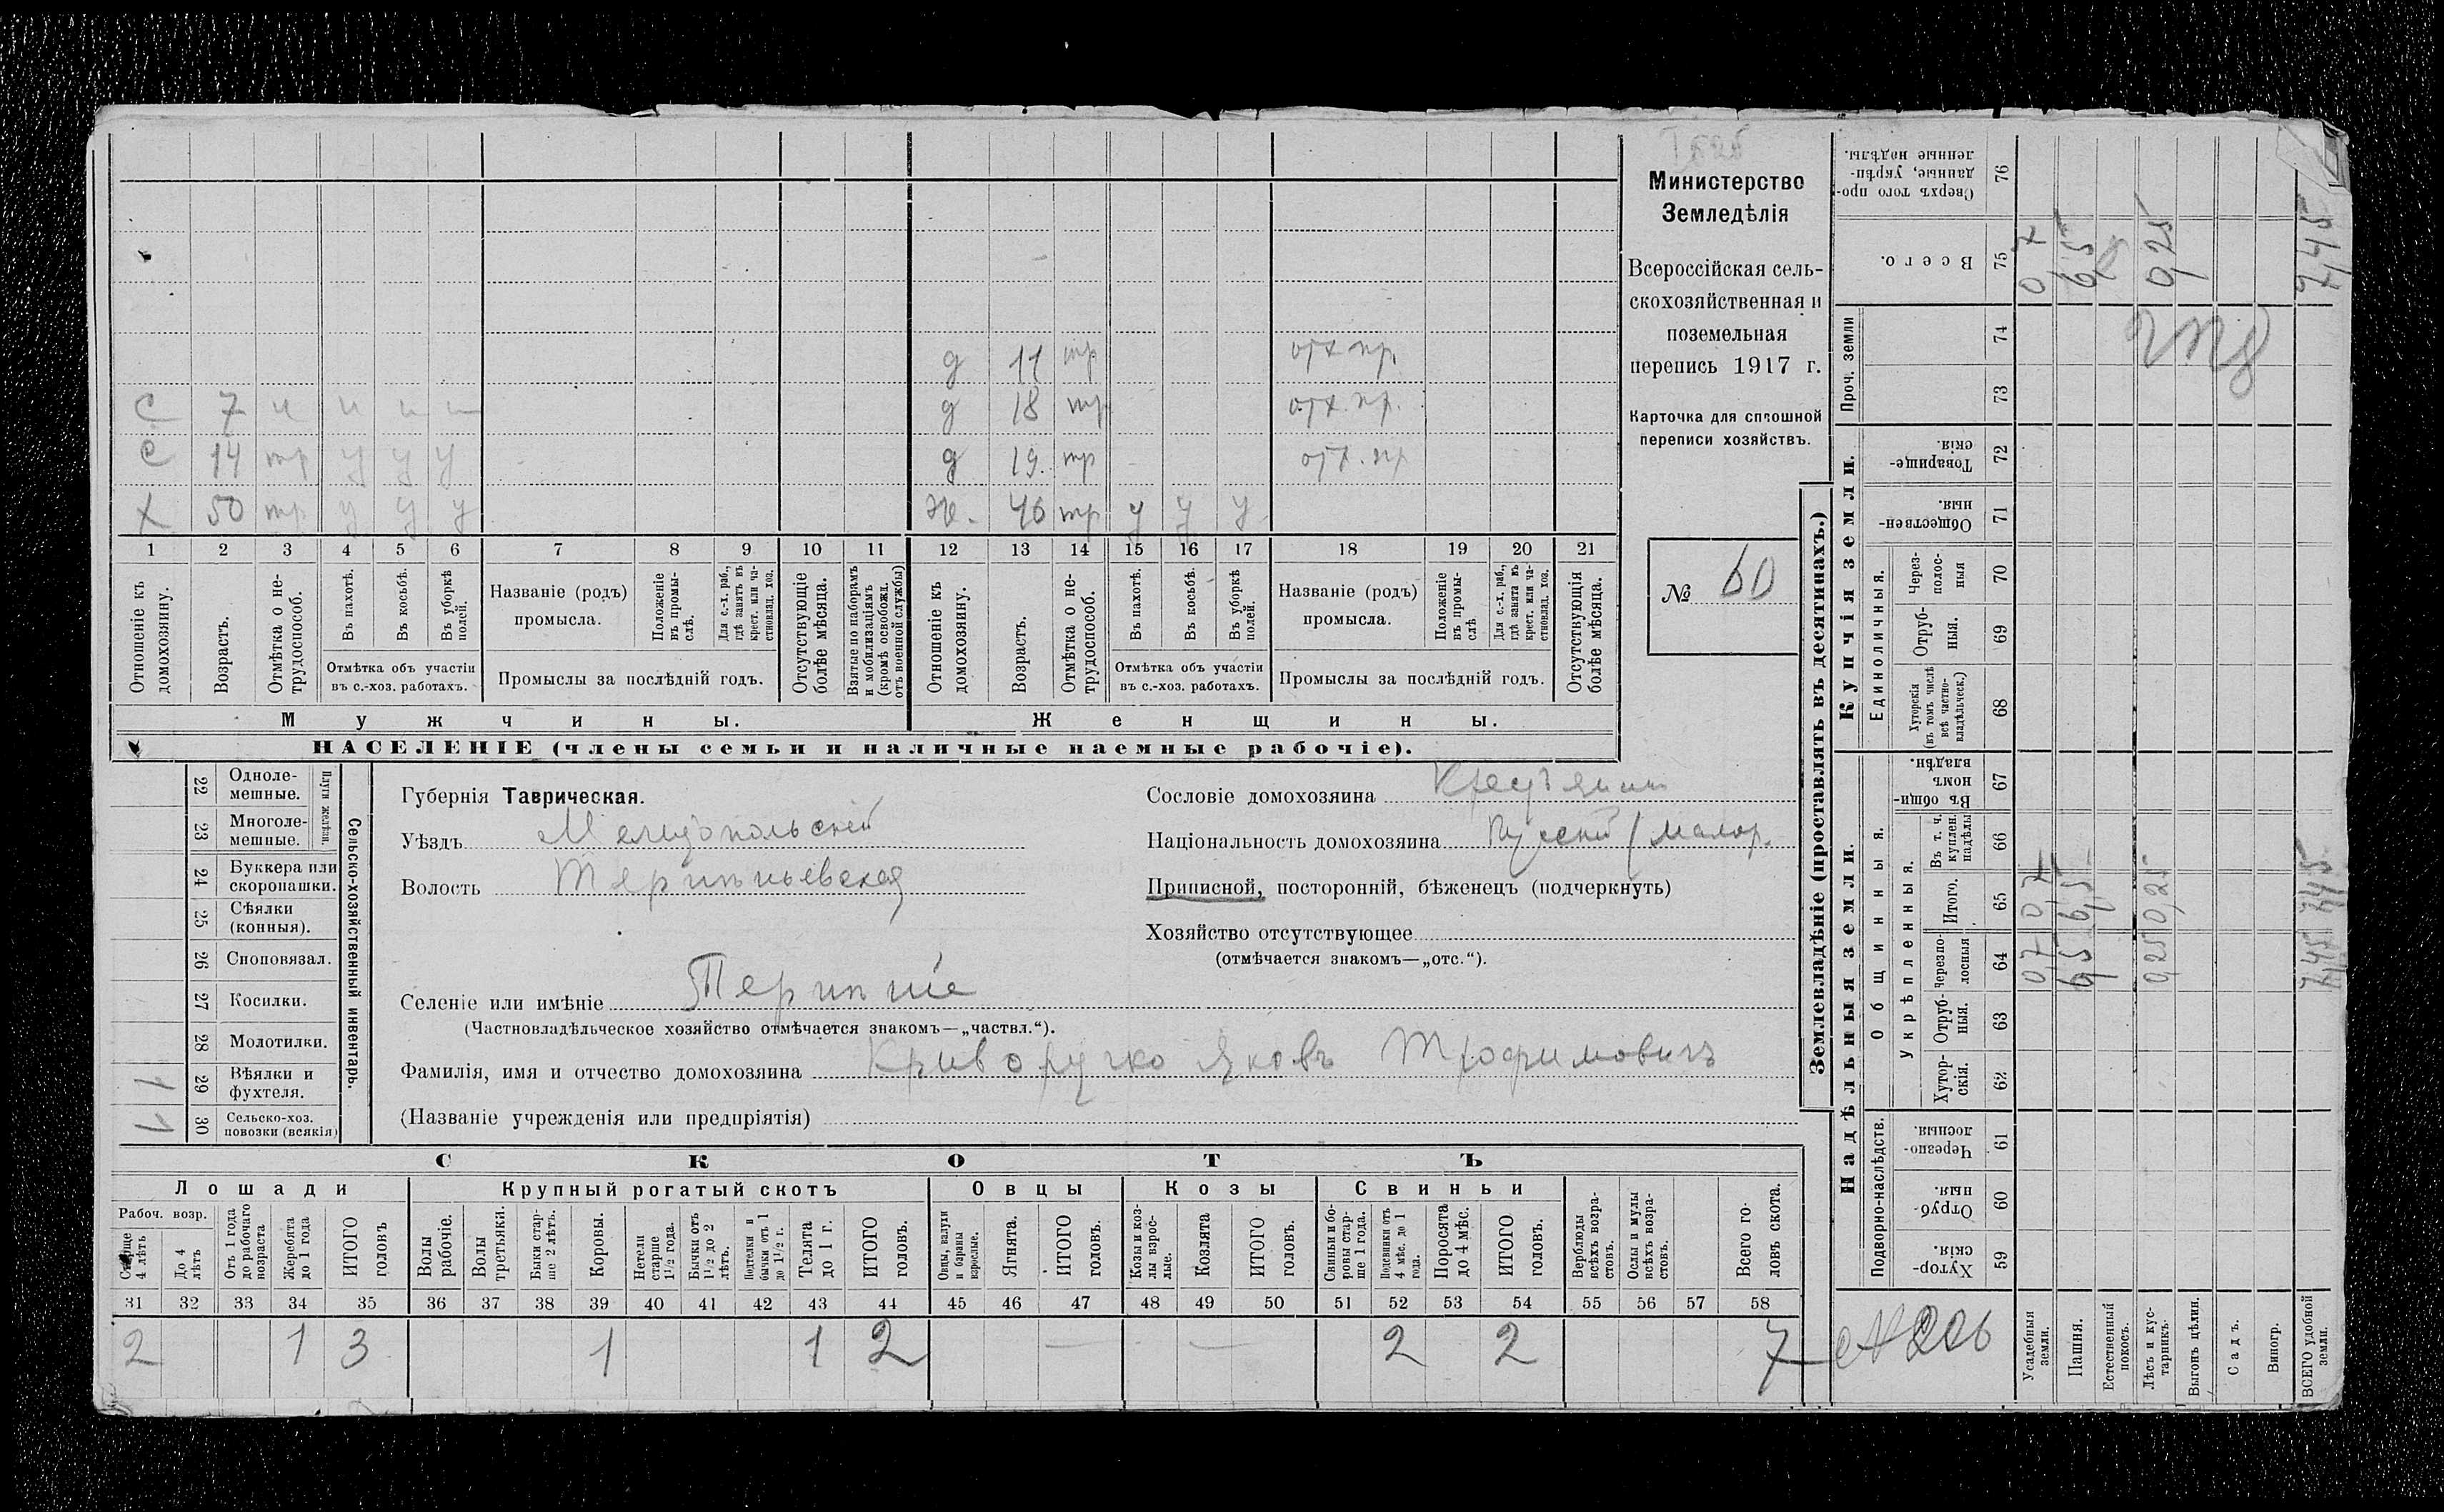 Министерство
Земледѣлія
Всероссійская сель-
скохозяйственная и
поземельная
перепись 1917 г.
Карточка для сплошной
переписи хозяйствъ.
№ 60
д 11 тр отх. пр.
С 7 н н н н д 18 тр отх. пр.
С 14 тр у у у д 19 тр отх. пр
Х 50 тр у у у ж. 46 тр у у у
1 2 3 4 5 6 7 8 9 10 11 12 13 14 15 16 17 18 19 20 21
Отношеніе къ домохозяину.
Возрастъ.
Отмѣтка о не-трудоспособ.
Въ пахотѣ.
Въ косьбѣ.
Въ уборкѣ полей.
Отмѣтка объ участіи въ с.-хоз. работахъ.
Названіе (родъ) промысла.
Положеніе въ промы-слѣ.
Для с.-х. раб., гдѣ занятъ въ крест. или ча-стновлад. хоз.
Промыслы за послѣдній годъ.
Отсутствующіе болѣе мѣсяца.
Взятые по наборамъ и мобилизаціямъ (кромѣ освобожд. отъ военной службы)
Отношеніе къ домохозяину.
Возрастъ.
Отмѣтка о не-трудоспособ.
Въ пахотѣ.
Въ косьбѣ.
Въ уборкѣ полей.
Отмѣтка объ участіи въ с.-хоз. работахъ.
Названіе (родъ) промысла.
Положеніе въ промы-слѣ
Для с.-х. раб., гдѣ занята въ крест. или ча-стновлад. хоз.
Промыслы за послѣдній годъ.
Отсутствующія болѣе мѣсяца.
Мужчины. Женщины.
НАСЕЛЕНІЕ (члены семьи и наличные наемные рабочіе).
Сельско-хозяйственный инвентарь.
Плуги желѣзн.
22 Одноле-мешные.
23 Многоле-мешные.
24 Буккера или скоропашки.
25 Сѣялки (конныя).
26 Сноповязал.
27 Косилки.
28 Молотилки.
29 Вѣялки и фухтеля. 1
30 Сельско-хоз. повозки (всякія) 1
Губернія Таврическая.
Уѣздъ Мелитопольскій
Волость Терпиньевская
Селеніе или имѣніе Терпиніе
(Частновладѣльческое хозяйство отмѣчается знакомъ—„частвл.“).
Фамилія, имя и отчество домохозяина Криворучко Яковъ Трофимовичъ
(Названіе учрежденія или предпріятія)
Сословіе домохозяина Крестьянин
Національность домохозяина Русский (малор.
Приписной, посторонній, бѣженецъ (подчеркнуть)
Хозяйство отсутствующее
(отмѣчается знакомъ—„отс.“).
СКОТЪ
Лошади
Рабоч. возр.
Старше 4 лѣтъ
До 4 лѣтъ
Отъ 1 года до рабочаго возраста
Жеребята до 1 года
ИТОГО головъ
Крупный рогатый скотъ
Волы рабочіе.
Волы третьяки.
Быки стар-ше 2 лѣтъ.
Коровы.
Нетели старше 1½ года.
Бычки отъ 1½ до 2 лѣтъ.
Подтелки и бычки отъ 1 до 1½ г.
Телята до 1 г.
ИТОГО головъ.
Овцы
Овцы, валухи и бараны взрослые.
Ягнята.
ИТОГО головъ.
Козы
Козы и коз-лы взрос-лые.
Козлята
ИТОГО головъ.
Свиньи
Свиньи и бо-ровы стар-ше 1 года.
Подсвинки отъ 4 мѣс. до 1 года.
Поросята до 4 мѣс.
ИТОГО головъ.
Верблюды всѣхъ возра-стовъ.
Ослы и мулы всѣхъ возра-стовъ.
Всего го-ловъ скота.
31 32 33 34 35 36 37 38 39 40 41 42 43 44 45 46 47 48 49 50 51 52 53 54 55 56 57 58
2 1 3 1 1 2 — — 2 2 7
Землевладѣніе (проставлять въ десятинахъ.)
Надѣльныя земли.
Подворно-наслѣдств.
Хутор-скія. 59
Отруб-ныя. 60
Черезпо-лосныя. 61
Общинныя.
Укрѣпленныя.
Хутор-скія. 62
Отруб-ныя. 63
Черезпо-лосныя 64
Итого. 65
Въ т. ч. куплен. надѣлы 66
Въ общин-номъ владѣн. 67
Купчія земли.
Единоличныя.
Хуторскія (въ томъ числѣ всѣ частно-владѣльческ.) 68
Отруб-ныя. 69
Через-полос-ныя 70
Обществен-ныя. 71
Товарище-скія. 72
Проч. земли
73 74
Всего. 75
Сверхъ того про-данные, укрѣп-ленные надѣлы. 76
Усадебныя земли. 0,7 0,7 0,7
Пашня. 6,5 6,5 6,5
Естественный покосъ.
Лѣсъ и кус-тарникъ. 0,25 0,25 0,25
Выгонъ цѣлин.
Садъ.
Виногр.
ВСЕГО удобной земли. 7,45 7,45 7,45
№ 206